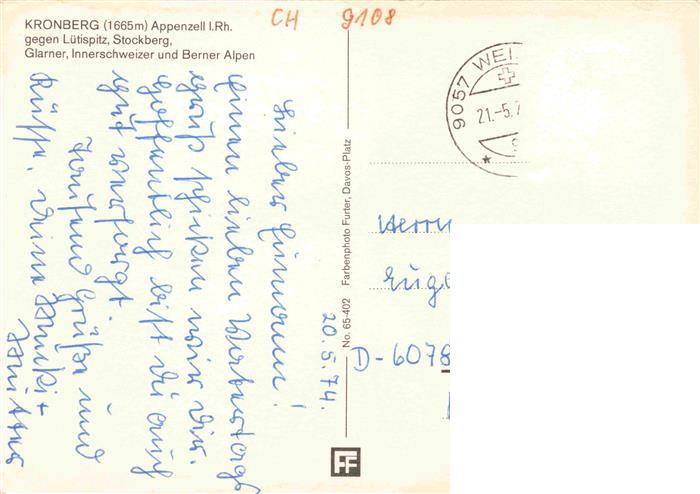 KRONBERG (1665m) Appenzell I.Rh.
gegen Lütispitz, Stockberg,
Glarner, Innerschweizer und Berner Alpen
CH 9108
9057 WEI
21.-5.7
No. 65-402 Farbenphoto Furter, Davos-Platz
20.5.74.
Lieber
Einen lieben Vatertags
gruß schicken wir Dir.
Hoffentlich bist Du auch
gut versorgt.
Tausend Grüße und
Küsse, Deine
Herrn
Euge
D-6078
FF